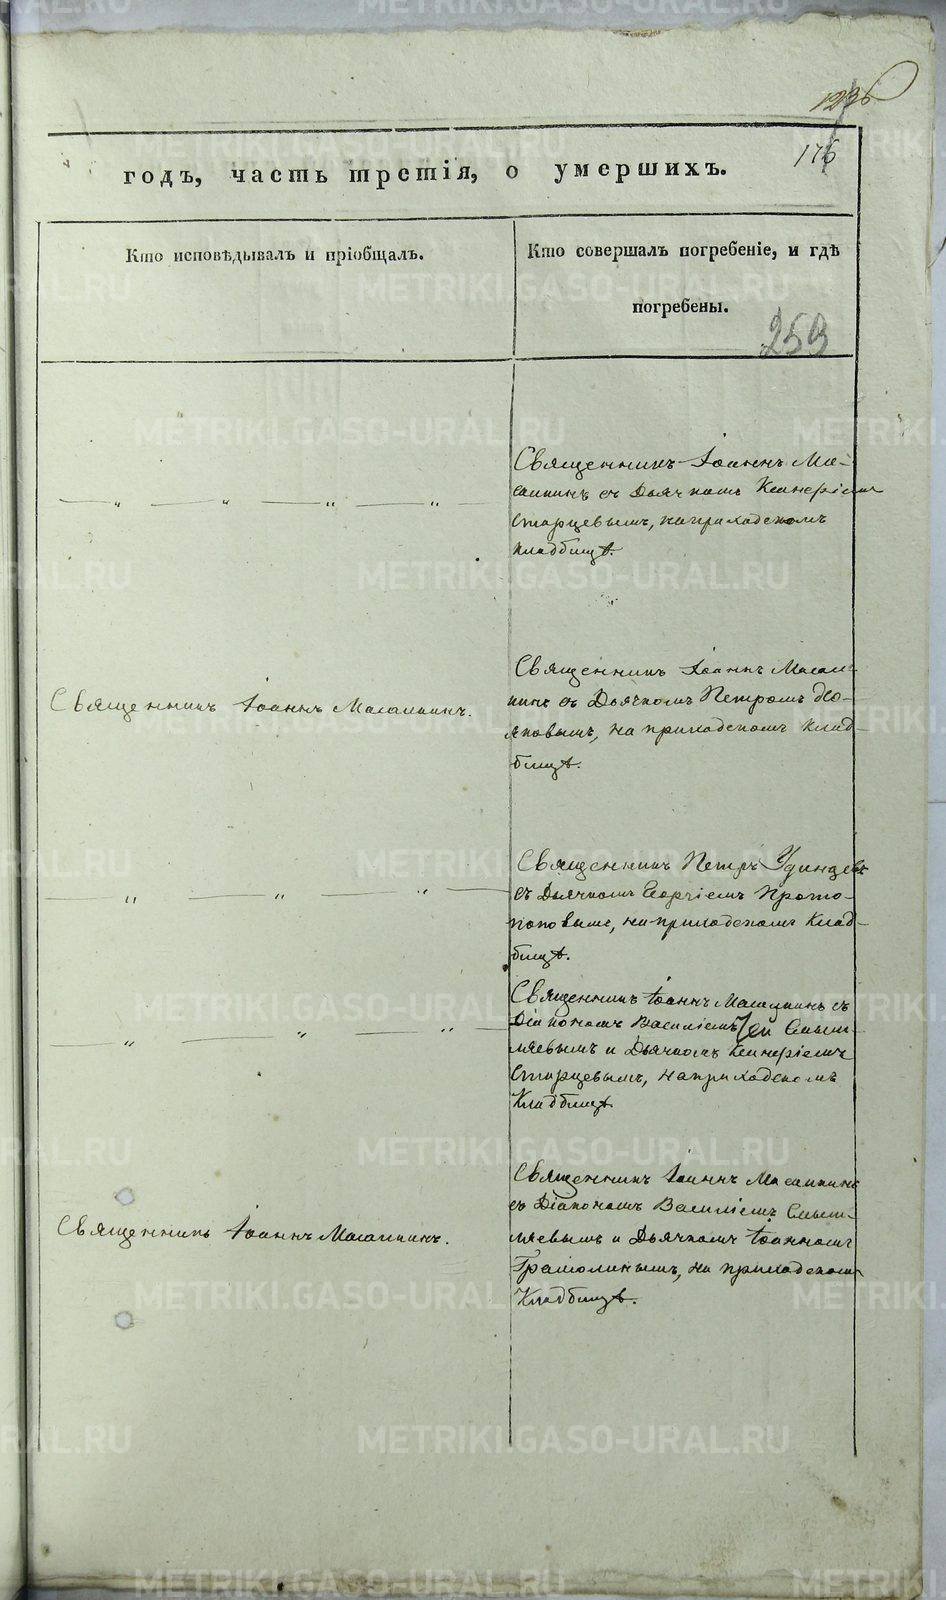 176
годъ, часть третія, о умершихъ.
Кто исповѣдывалъ и пріобщалъ.
Кто совершалъ погребеніе, и гдѣ
погребены.
259
Священникъ Іоаннъ Ма-
салкинъ съ Дьячкомъ
Старцевымъ, на приходскомъ
кладбищѣ.
Священникъ Іоаннъ Масалкинъ.
Священникъ Іоаннъ Масал-
кинъ съ Дьячкомъ Петромъ
на приходскомъ клад-
бищѣ.
Священникъ Петръ Удинцевъ
съ Дьячкомъ Георгіемъ Прото-
поповымъ, на приходскомъ Клад-
бищѣ.
Священникъ Іоаннъ Масалкинъ съ
Діакономъ Василіемъ Смыш-
ляевымъ и Дьячкомъ
Старцевымъ, на приходскомъ
Кладбищѣ
Священникъ Іоаннъ Масалкинъ.
Священникъ Іоаннъ Масалкинъ
съ Діакономъ Василіемъ Смыш-
ляевымъ и Дьячкомъ Іоанномъ
на приходскомъ
Кладбищѣ.
METRIKI.GASO-URAL.RU